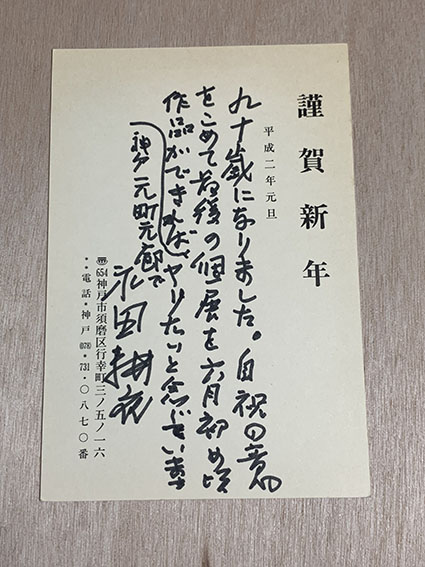 謹賀新年
平成二年元旦
九十歳になりました。自祝の意
をこめて最後の個展を六月初め頃
作品ができれば、ヤリたいと念じています
神戸元町元廊で
永田耕衣
〒654神戸市須磨区行幸町三ノ五ノ一六
・・電話・神戸(078)・731・〇八七〇番